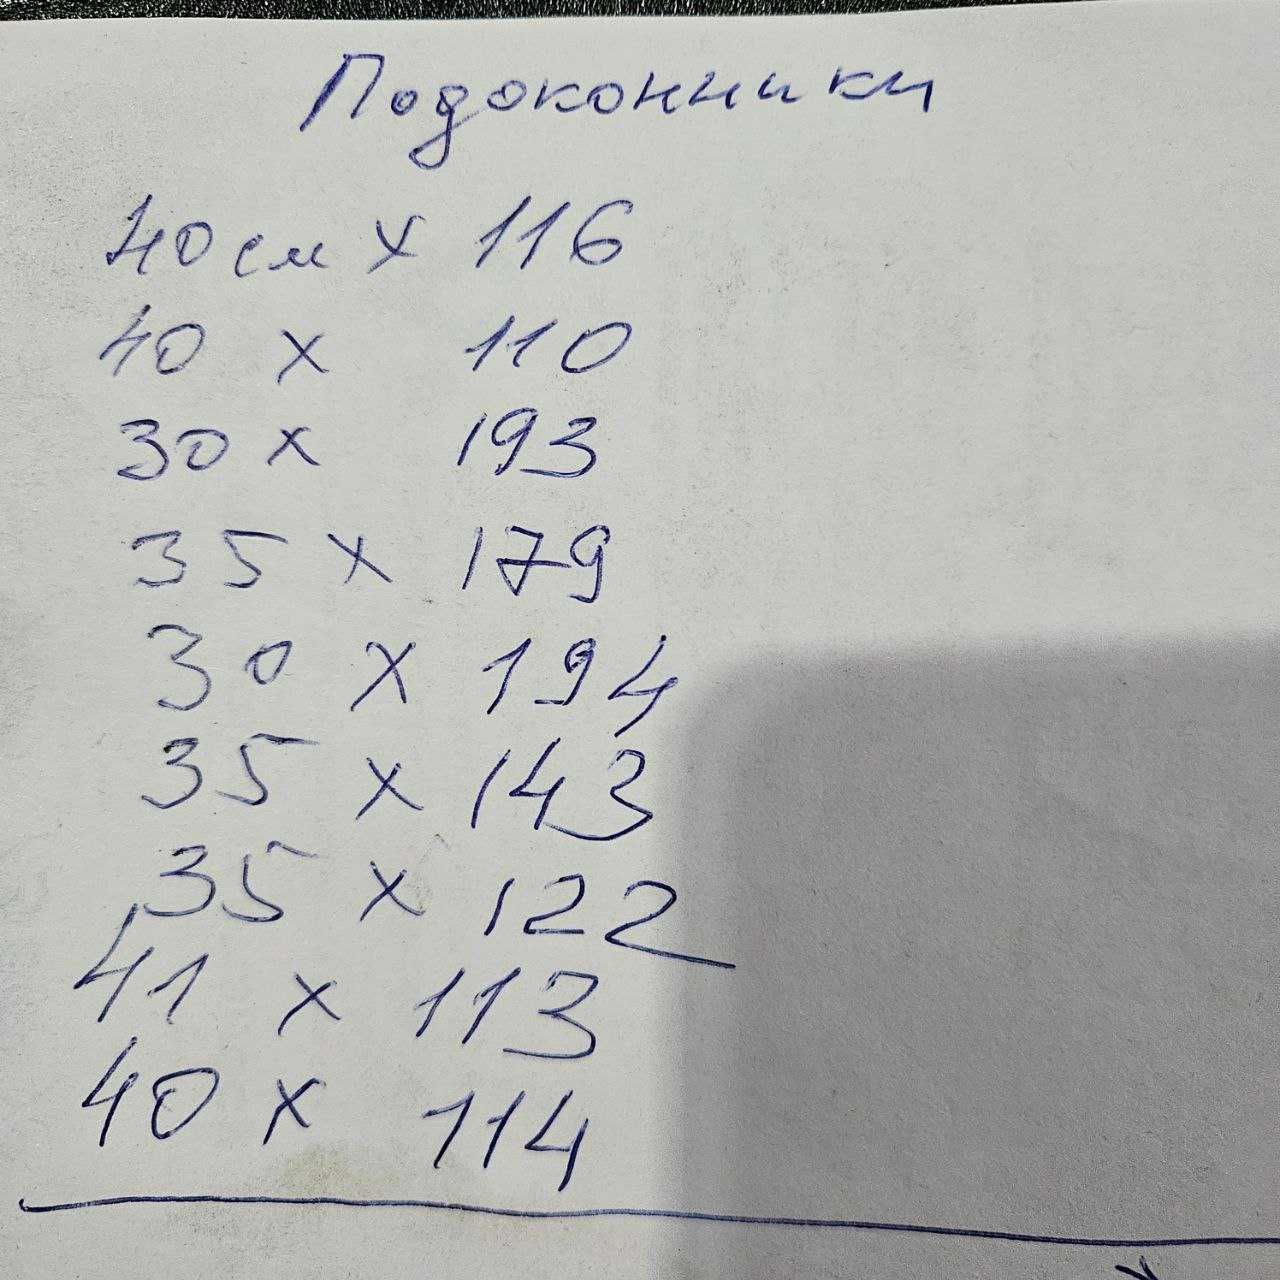 Подоконники
40см х 116
40 х 110
30 х 193
35 х 179
30 х 194
35 х 143
35 х 122
41 х 113
40 х 114